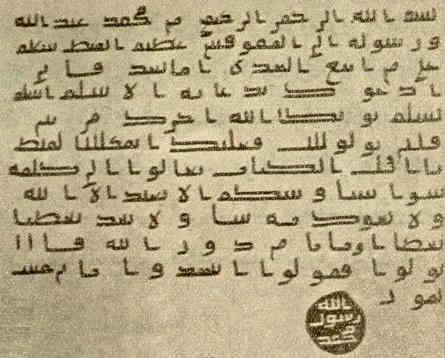 بسم الله الرحمن الرحيم من محمد عبد الله
ورسوله الى المقوقس عظيم القبط سلم
على من اتبع الهدى اما بعد فانى
ادعوك بدعاية الاسلم اسلم
تسلم يوتك الله اجرك مرتين
فان توليت فعليك القبط
يا اهل الكتاب تعالوا الى كلمة
سوا بيننا وبينكم الا نعبد الا الله
ولا نشرك به شيا ولا يتخذ بعضنا
بعضا اربابا من دون الله فان
تولوا فقولوا اشهدوا بانا مسلـ
مون
الله
رسول
محمد